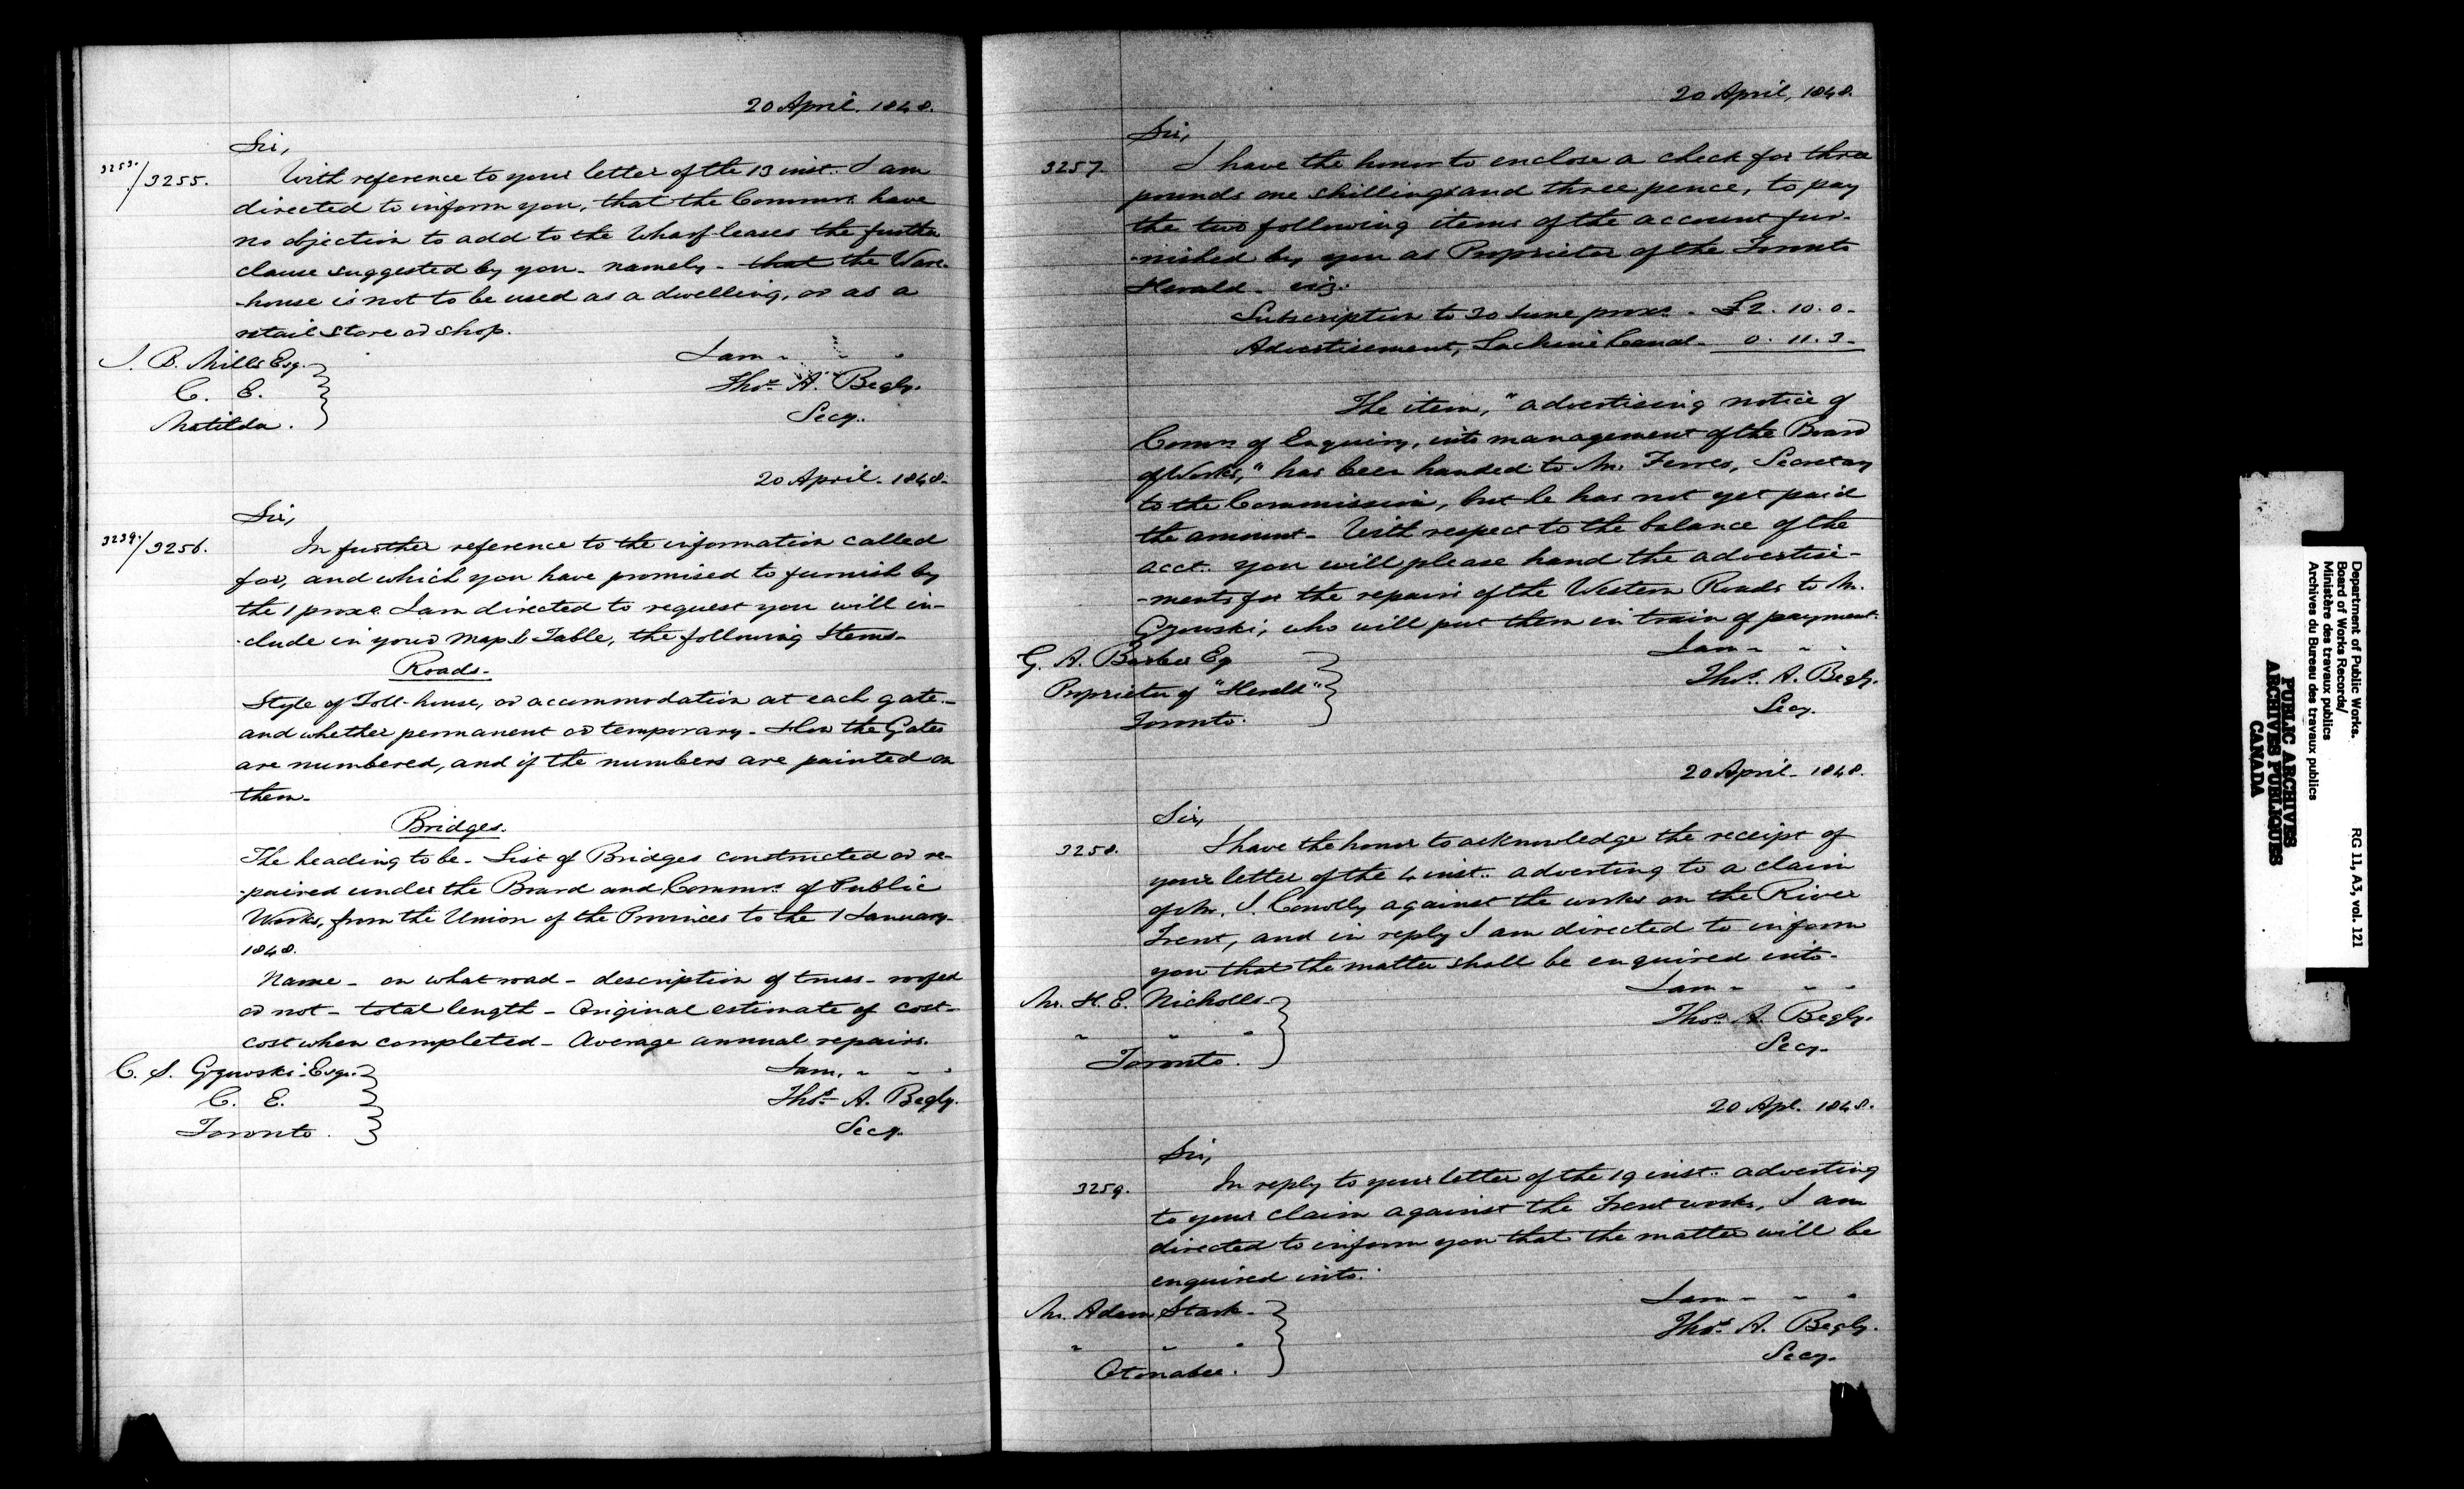 20 April. 1848.
Sir,
3253./3255.
With reference to your letter of the 13 inst. I am
directed to inform you, that the Commrs. have
no objection to add to the Wharf leases the further
clause suggested by you - namely - that the Ware-
-house is not to be used as a dwelling, or as a
retail store or shop.
I am - - -
J. B. Mills Esq.
C. E.
Matilda.
Thos. A. Begly.
Secy.
20 April. 1848.
Sir,
3239./3256.
In further reference to the information called
for, and which you have promised to furnish by
the 1 proxo. I am directed to request you will in-
-clude in your map & Table, the following Items-
Roads.
Style of Toll-house, or accommodation at each gate.-
and whether permanent or temporary - How the Gates
are numbered, and if the numbers are painted on
them.
Bridges.
The heading to be - List of Bridges constructed or re-
-paired under the Board and Commrs. of Public
Works, from the Union of the Provinces to the 1 January
1848.
Name - on what road - description of truss - roofed
or not - total length - Original estimate of cost -
cost when completed - Average annual repairs.
C. S. Gzowski Esqr.
C. E.
Toronto.
I am, - - -
Thos. A. Begly.
Secy.
20 April, 1848.
Sir,
3257.
I have the honor to enclose a check for three
pounds one shilling and three pence, to pay
the two following items of the account fur-
-nished by you as Proprietor of the Toronto
Herald - viz.
Subscription to 30 June proxo. - £2. 10. 0 -
Advertisement, Lachine Canal - 0. 11. 3 -
The item, "advertising notice of
Comrs of Enquiry, into management of the Board
of Works," has been handed to Mr. Ferres, Secretary
to the Commission, but he has not yet paid
the amount - With respect to the balance of the
acct. you will please hand the advertise-
-ments for the repairs of the Western Roads to Mr.
Gzowski, who will put them in train of payment.
I am - - -
G. A. Barber Eq
Proprietor of "Herald"
Toronto.
Thos. A. Begly.
Secy.
20 April - 1848.
Sir,
3258.
I have the honor to acknowledge the receipt of
your letter of the 4 inst. adverting to a claim
of Mr. J. Conolly against the works on the River
Trent, and in reply I am directed to inform
you that the matter shall be enquired into -
I am - - -
Mr. H. E. Nicholls -
" " "
Toronto.
Thos. A. Begly.
Secy.
20 Apl. 1848.
Sir,
3259.
In reply to your letter of the 19 inst. adverting
to your claim against the Trent works, I am
directed to inform you that the matter will be
enquired into.
I am - - -
Mr. Adam Stark -
" " "
Otonabee.
Thos. A. Begly.
Secy.
Department of Public Works. RG 11, A3, vol. 121
Board of Works Records/
Ministère des travaux publics
Archives du Bureau des travaux publics
PUBLIC ARCHIVES
ARCHIVES PUBLIQUES
CANADA